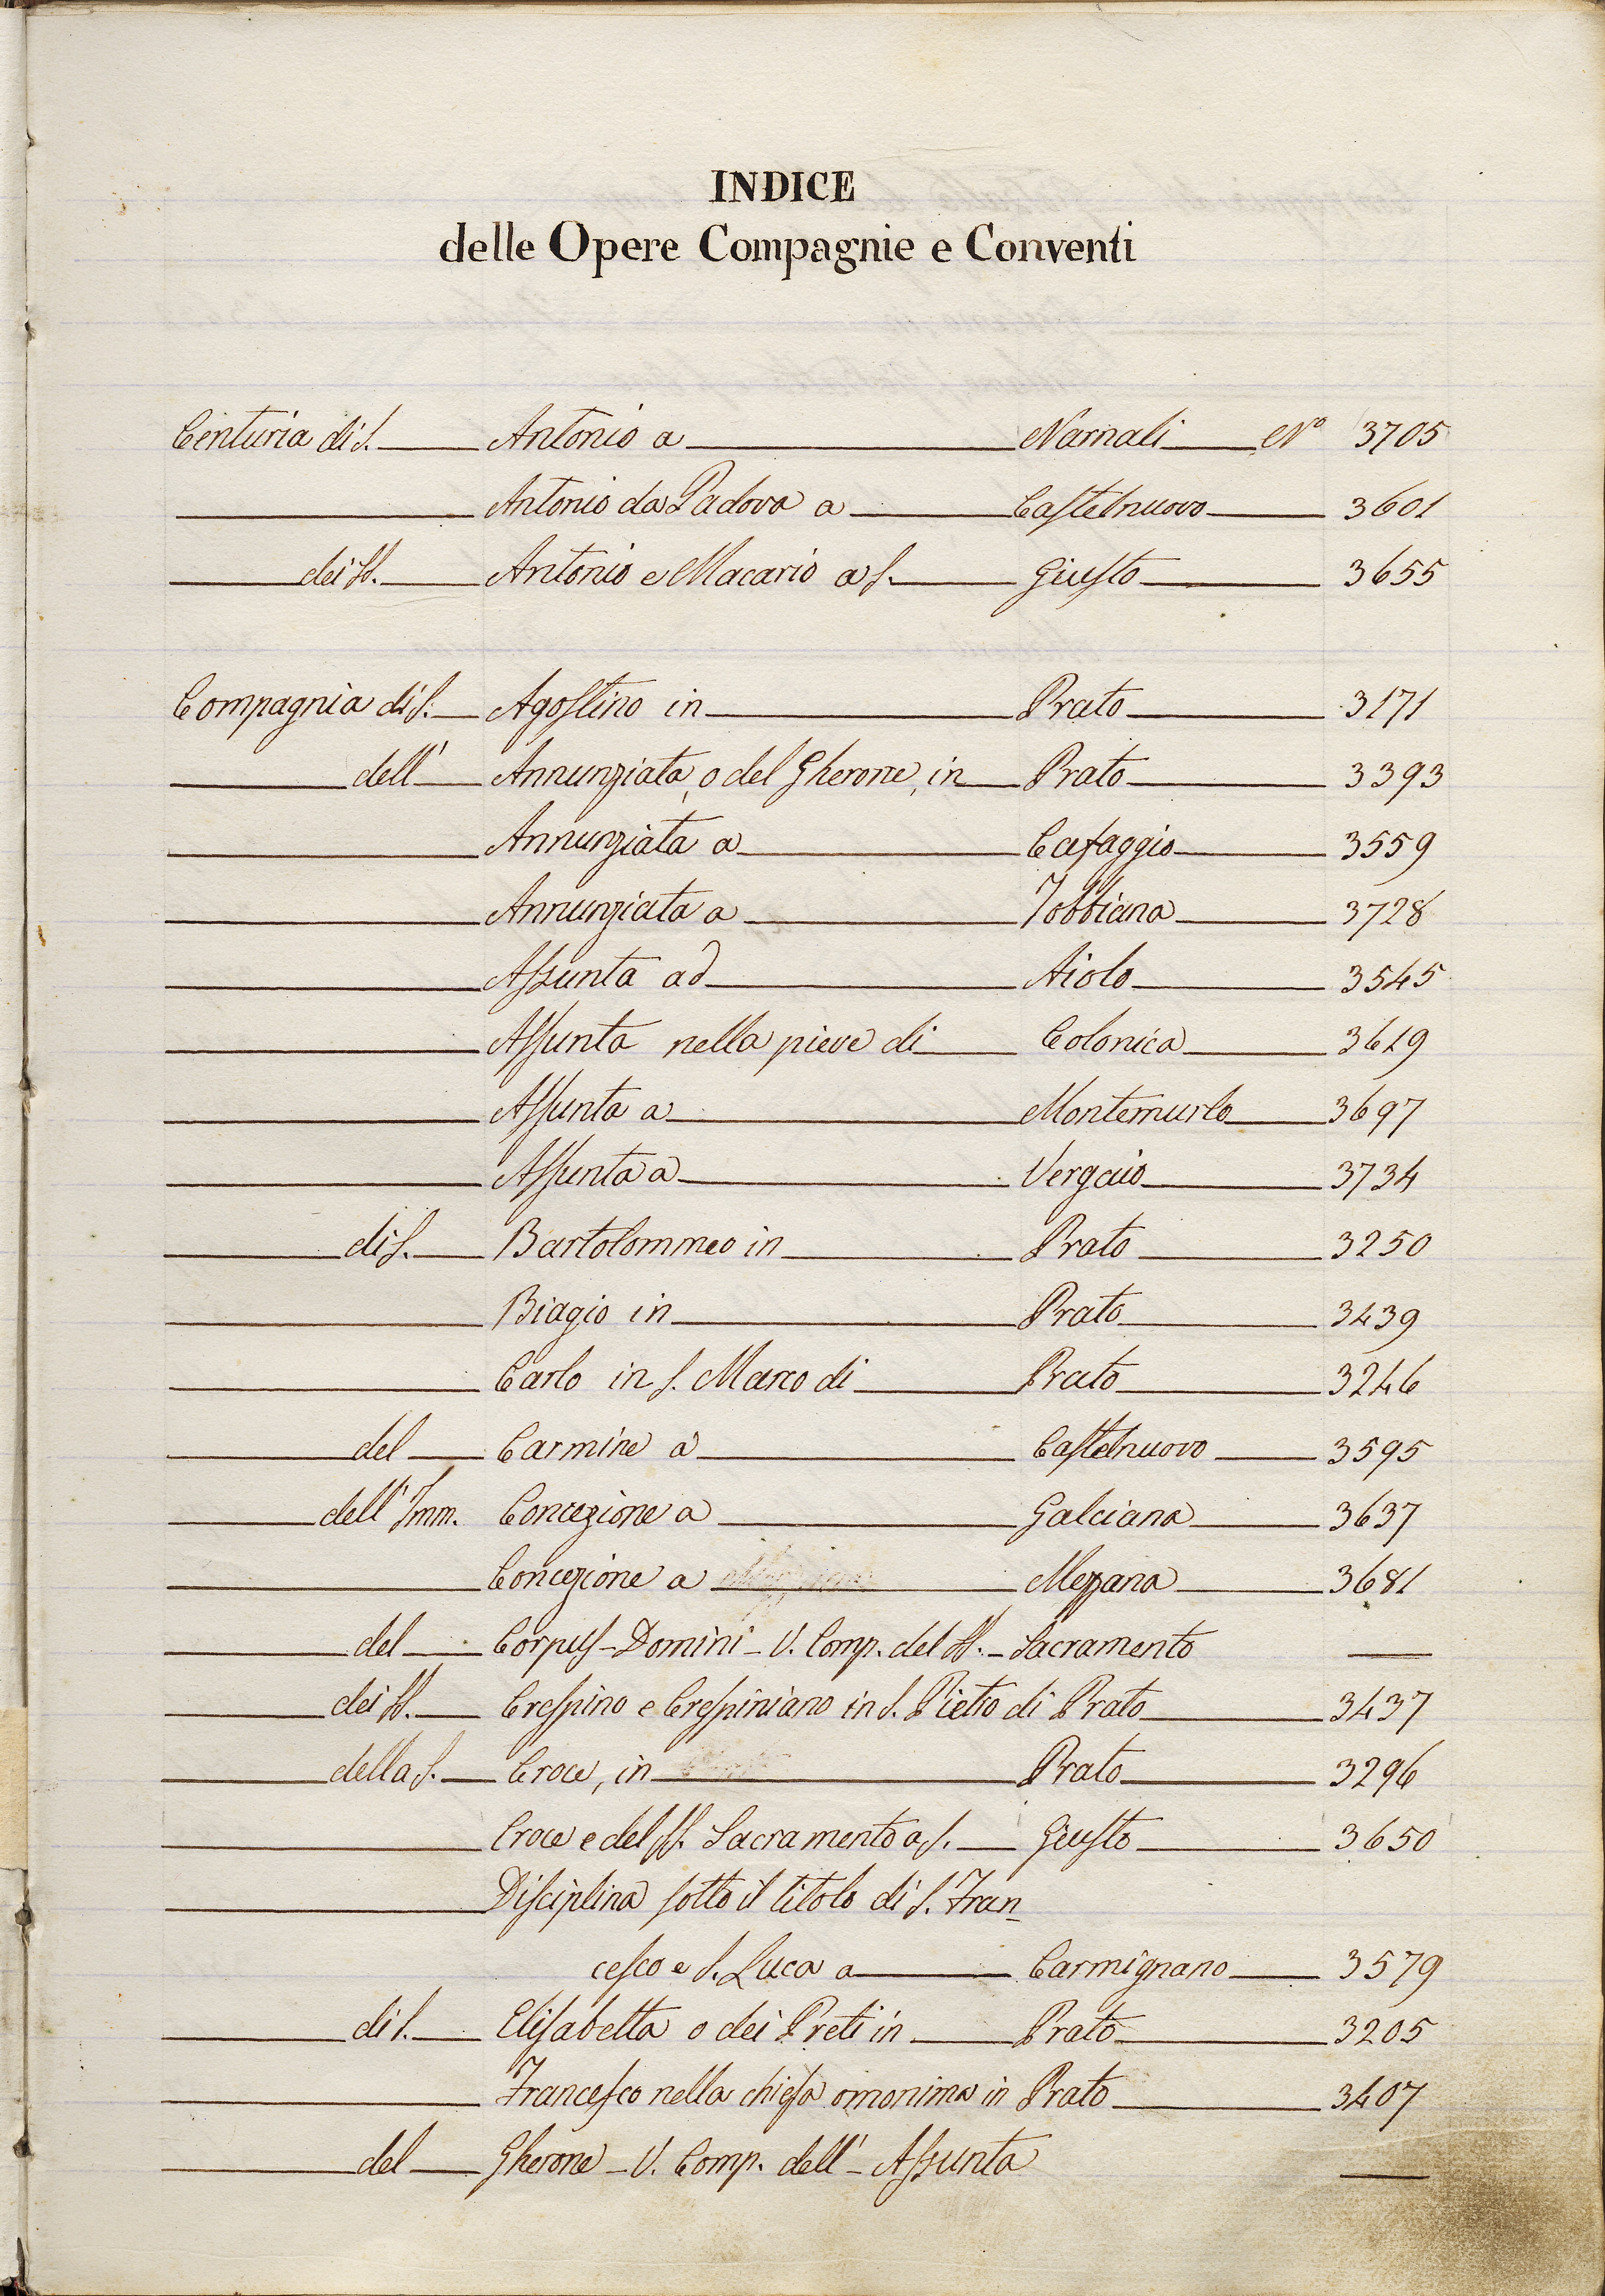 INDICE
delle Opere Compagnie e Conventi
Centuria di S. Antonio a Narnali N° 3705
Antonio da Padova a Castelnuovo 3601
dei SS. Antonio e Macario a S. Giusto 3655
Compagnia di S. Agostino in Prato 3171
dell' Annunziata, o del Gherone, in Prato 3393
Annunziata a Cafaggio 3559
Annunziata a Tobbiana 3728
Assunta ad Aiolo 3545
Assunta nella pieve di Colonica 3619
Assunta a Montemurlo 3697
Assunta a Vergaio 3734
di S. Bartolommeo in Prato 3250
Biagio in Prato 3439
Carlo in S. Marco di Prato 3246
del Carmine a Castelnuovo 3595
dell' Imm. Concezione a Galciana 3637
Concezione a Mezzana 3681
del Corpus-Domini - V. Comp. del SS. - Sacramento
dei SS. Crespino e Crespiniano in S. Pietro di Prato 3437
della S. Croce, in Prato 3296
Croce e del SS. Sacramento a S. Giusto 3650
Disciplina sotto il titolo di S. Fran-
cesco e S. Luca a Carmignano 3579
di S. Elisabetta o dei Preti in Prato 3205
Francesco nella chiesa omonima in Prato 3407
del Gherone - V. Comp. dell' - Assunta